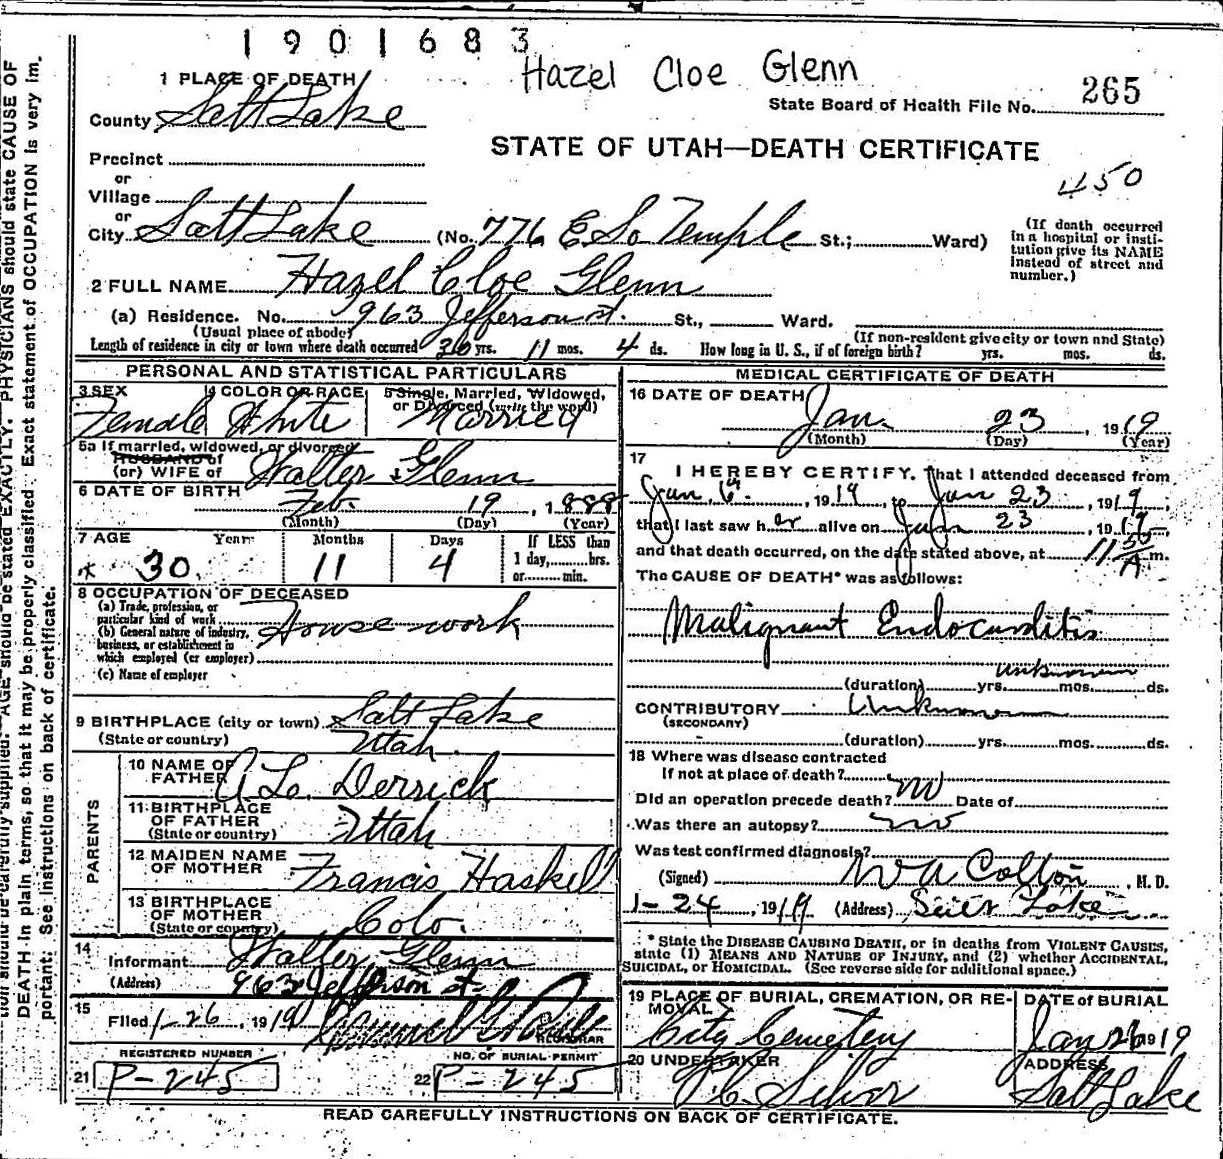 1901683
Hazel Cloe Glenn
1 PLACE OF DEATH
State Board of Health File No. 265
County Salt Lake
STATE OF UTAH—DEATH CERTIFICATE
Precinct
or
450
Village
or
City Salt Lake (No. 776 E So Temple St.; Ward)
(If death occurred in a hospital or insti-
tution give its NAME
instead of street and
number.)
2 FULL NAME Hazel Cloe Glenn
(a) Residence. No. 963 Jefferson st. St., Ward.
(Usual place of abode) (If non-resident give city or town and State)
Length of residence in city or town where death occurred 30 yrs. 11 mos. 4 ds. How long in U. S., if of foreign birth? yrs. mos. ds.
PERSONAL AND STATISTICAL PARTICULARS
3 SEX 4 COLOR OR RACE 5 Single, Married, Widowed,
or Divorced (write the word)
Female White Married
5a If married, widowed, or divorced
HUSBAND of
(or) WIFE of Walter Glenn
6 DATE OF BIRTH Feb. 19, 1888
(Month) (Day) (Year)
7 AGE Years Months Days If LESS than
1 day, hrs.
or min.
30 11 4
8 OCCUPATION OF DECEASED
(a) Trade, profession, or
particular kind of work House work
(b) General nature of industry,
business, or establishment in
which employed (or employer)
(c) Name of employer
9 BIRTHPLACE (city or town) Salt Lake
(State or country) Utah.
PARENTS
10 NAME OF
FATHER Derrick
11 BIRTHPLACE
OF FATHER
(State or country) Utah
12 MAIDEN NAME
OF MOTHER Francis Haskell
13 BIRTHPLACE
OF MOTHER
(State or country) Colo.
14
Informant Walter Glenn
(Address) 963 Jefferson st
15
Filed 1-26, 1919
REGISTRAR
REGISTERED NUMBER NO. OF BURIAL PERMIT
21 P-245 22 P-245
MEDICAL CERTIFICATE OF DEATH
16 DATE OF DEATH Jan. 23, 1919
(Month) (Day) (Year)
17
I HEREBY CERTIFY, That I attended deceased from
Jan. 6, 1919, to Jan 23, 1919,
that I last saw her alive on Jan 23, 1919
and that death occurred, on the date stated above, at 11 50 A m.
The CAUSE OF DEATH* was as follows:
Malignant Endocarditis
unknown
(duration) yrs. mos. ds.
CONTRIBUTORY Unknown
(SECONDARY)
(duration) yrs. mos. ds.
18 Where was disease contracted
If not at place of death? no
Did an operation precede death? Date of
Was there an autopsy? no
Was test confirmed diagnosis?
(Signed) Colton, M. D.
1-24, 1919 (Address) Lake
* State the DISEASE CAUSING DEATH, or in deaths from VIOLENT CAUSES,
state (1) MEANS AND NATURE OF INJURY, and (2) whether ACCIDENTAL,
SUICIDAL, or HOMICIDAL. (See reverse side for additional space.)
19 PLACE OF BURIAL, CREMATION, OR RE-
MOVAL DATE of BURIAL
City Cemetery Jan 26 1919
20 UNDERTAKER ADDRESS
Salt Lake
READ CAREFULLY INSTRUCTIONS ON BACK OF CERTIFICATE.
AGE should be stated EXACTLY. PHYSICIANS should state CAUSE OF
DEATH in plain terms, so that it may be properly classified. Exact statement of OCCUPATION is very im-
portant. See instructions on back of certificate.